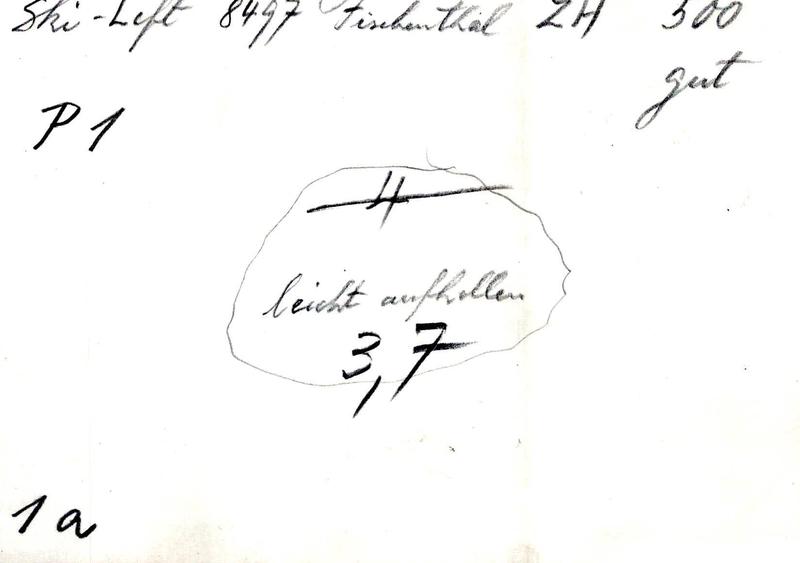 Ski-Lift 8497 Fischenthal ZH 500
gut
P 1
4
leicht aufhellen
3,7
1a